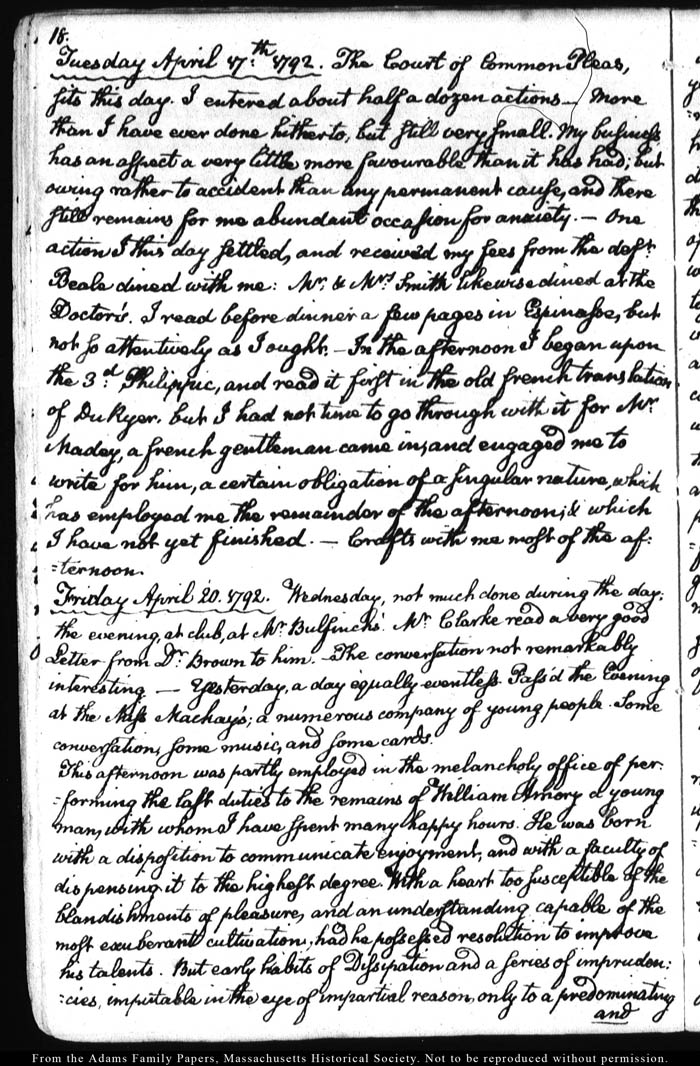 18.
Tuesday April 17.th 1792. The Court of Common Pleas,
sits this day. I entered about half a dozen actions — More
than I have ever done hitherto, but still very small. My business
has an aspect a very little more favourable than it has had; but
owing rather to accident than any permanent cause, and there
still remains for me abundant occasion for anxiety. — One
action I this day settled, and received my fees from the deft.
Beale dined with me: Mr. & Mrs. Smith likewise dined at the
Doctor's. I read before dinner a few pages in Espinasse, but
not so attentively as I ought. — In the afternoon I began upon
the 3.d Philippic, and read it first in the old french translation
of DuRyer. but I had not time to go through with it for Mr.
Madey, a french gentleman came in, and engaged me to
write for him, a certain obligation of a singular nature, which
has employed me the remainder of the afternoon; & which
I have not yet finished. — Crafts with me most of the af:
:ternoon.
Friday April 20. 1792. Wednesday, not much done during the day:
the evening, at club, at Mr. Bulfinch's. Mr. Clarke read a very good
Letter from Dr. Brown to him. — The conversation not remarkably
interesting — Yesterday, a day equally eventless. Pass'd the Evening
at the Miss Mackay's; a numerous company of young people. Some
conversation, some music, and some cards.
This afternoon was partly employed in the melancholy office of per:
:forming the last duties to the remains of William Amory a young
man, with whom I have spent many happy hours. He was born
with a disposition to communicate enjoyment, and with a faculty of
dispensing it to the highest degree. With a heart too susceptible of the
blandishments of pleasure, and an understanding capable of the
most exuberant cultivation, had he possessed resolution to improve
his talents. But early habits of Dissipation and a series of impruden:
:cies, imputable in the eye of impartial reason, only to a predominating
and
From the Adams Family Papers, Massachusetts Historical Society. Not to be reproduced without permission.